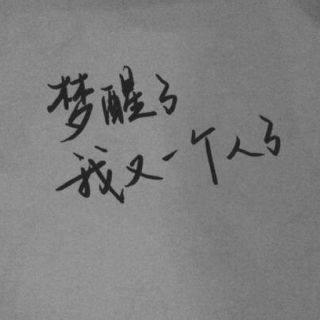 梦醒了
我又一个人了